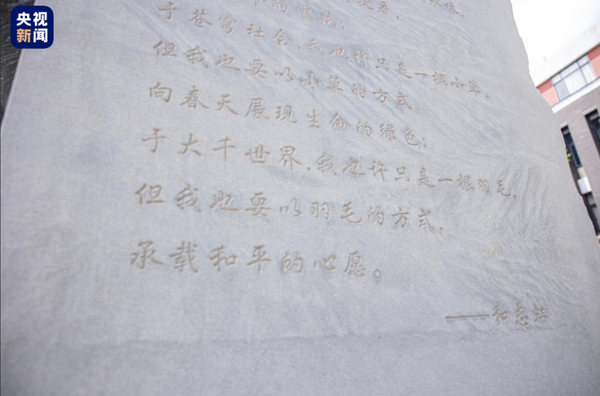 央视
新闻
于苍穹社会，我也许只是一棵小草，
但我也要以小草的方式，
向春天展现生命的绿色；
于大千世界，我也许只是一根羽毛，
但我也要以羽毛的方式，
承载和平的心愿。
——和志虹